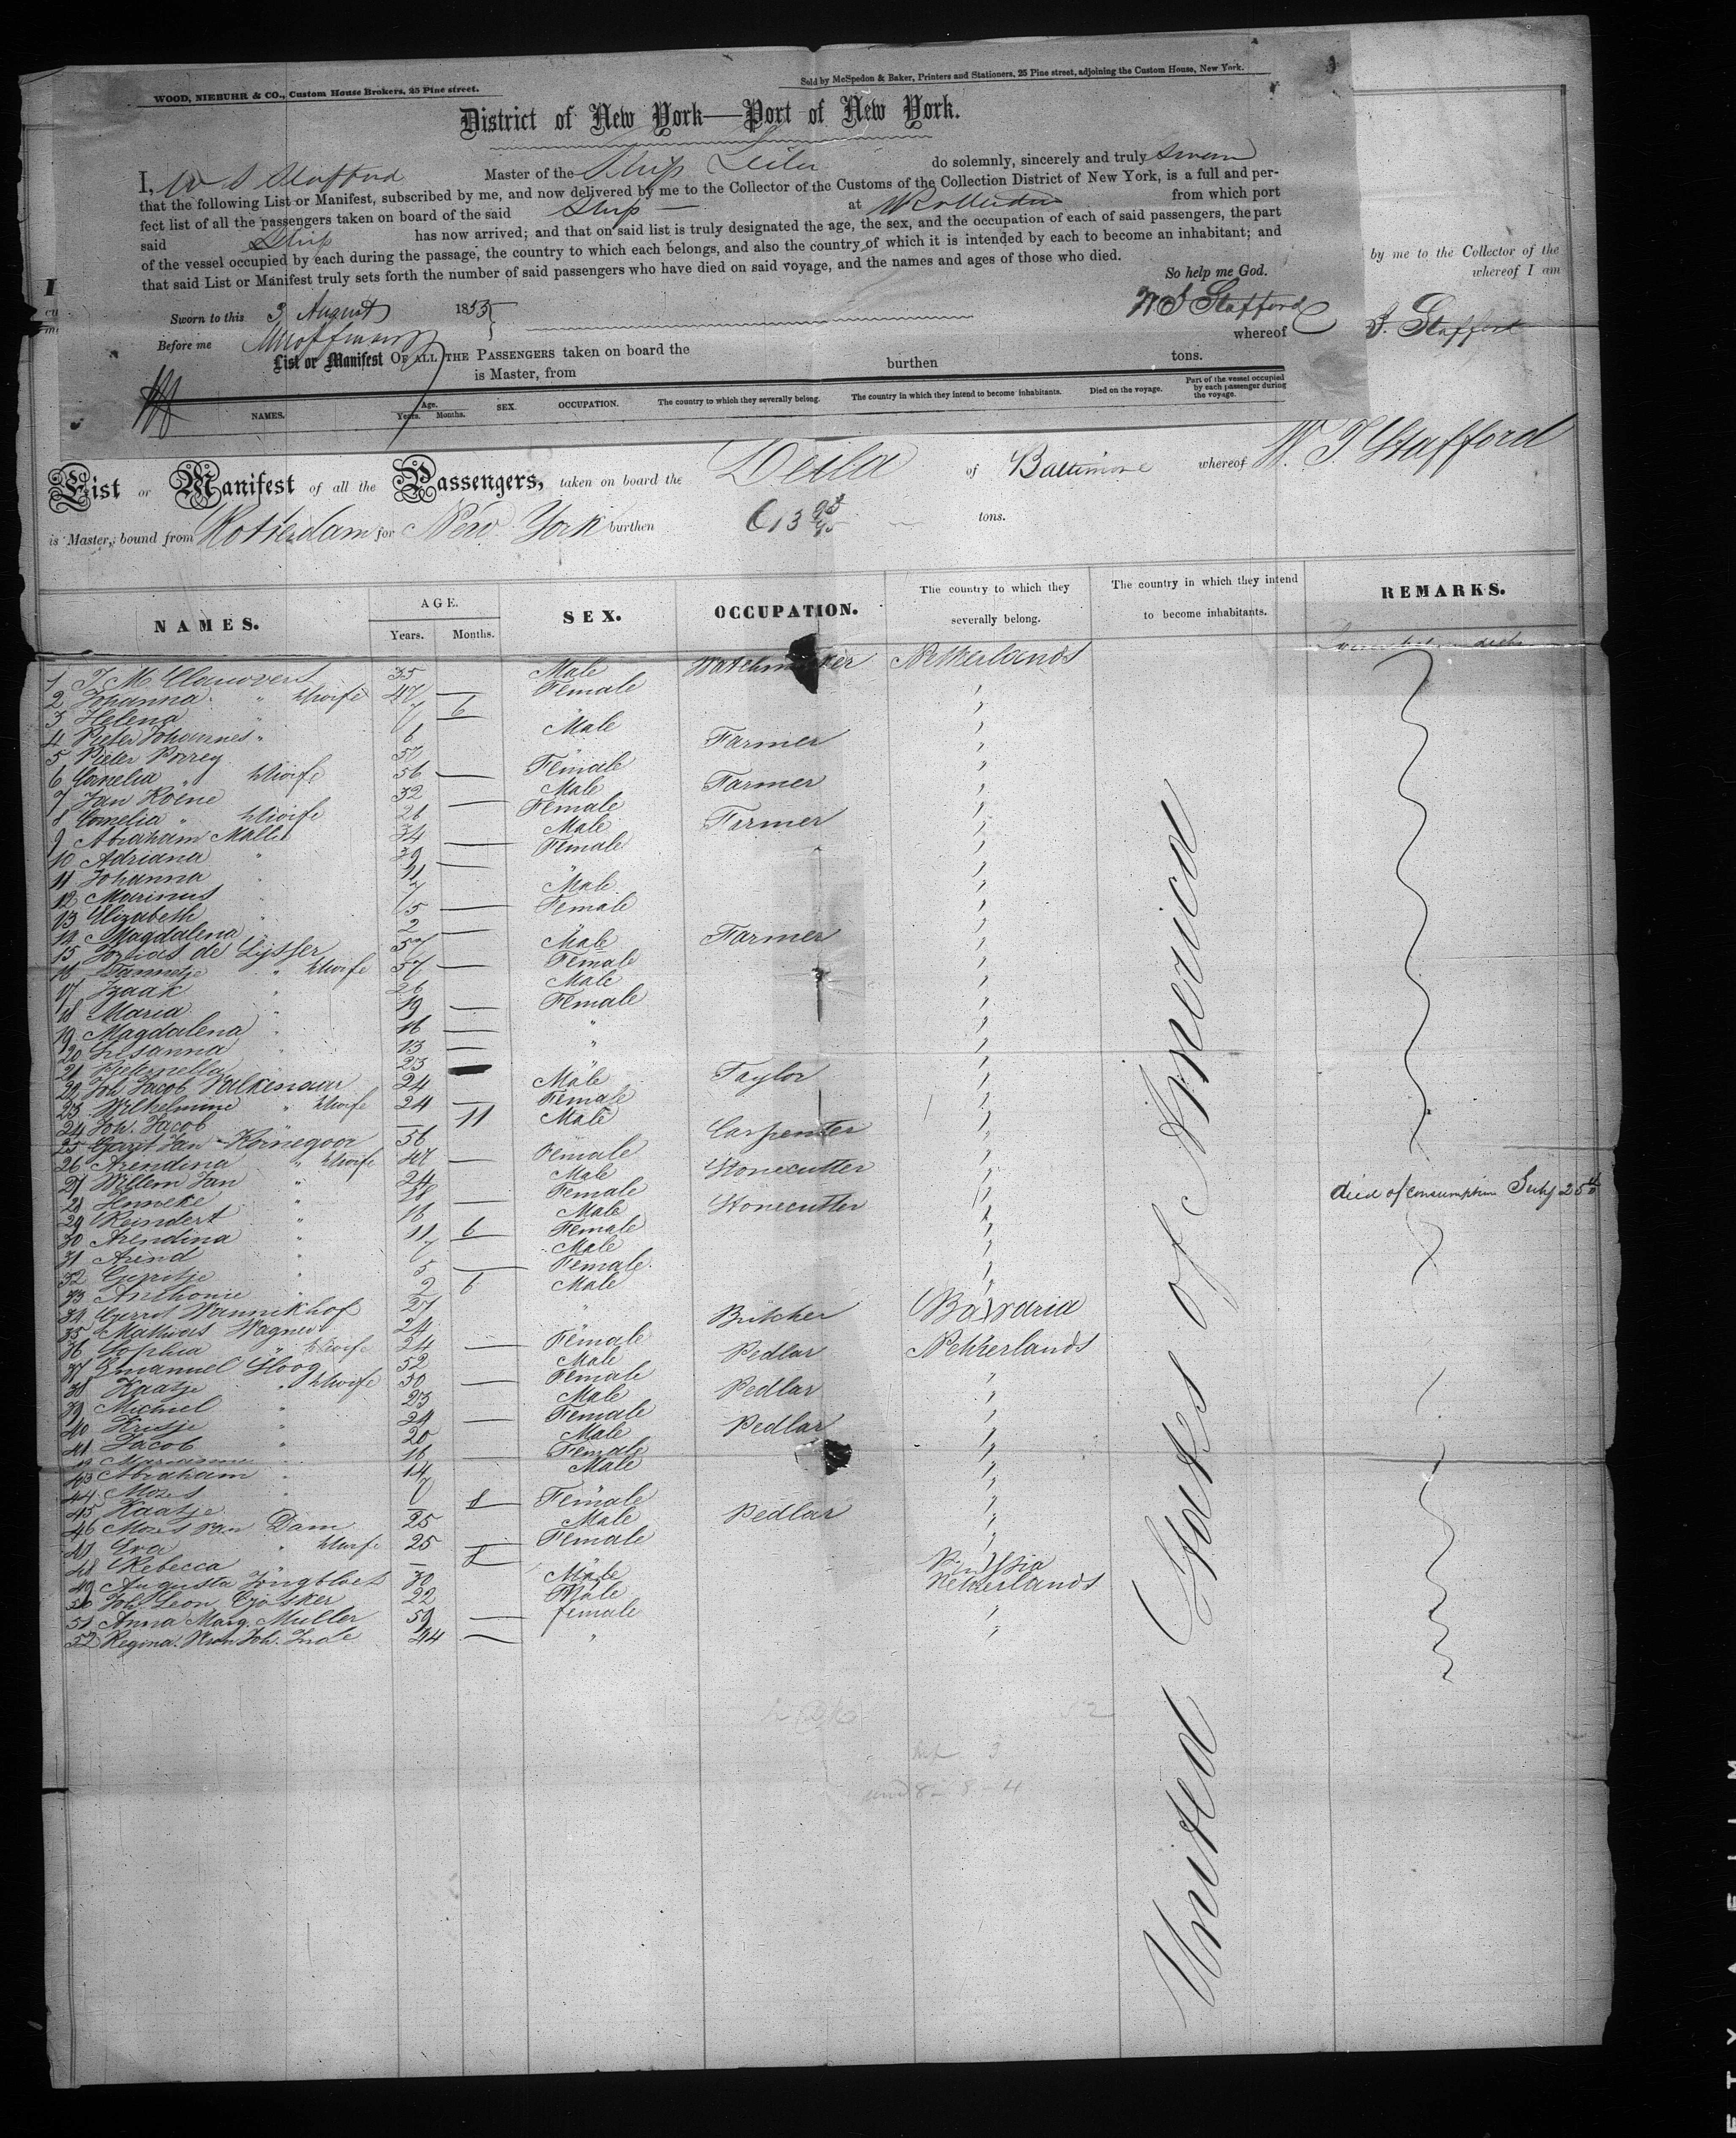 WOOD, NIEBUHR & CO., Custom House Brokers, 25 Pine street.
Sold by McSpedon & Baker, Printers and Stationers, 25 Pine street, adjoining the Custom House, New York.
District of New York—Port of New York.
I, W S Stafford Master of the Ship Leila do solemnly, sincerely and truly swear
that the following List or Manifest, subscribed by me, and now delivered by me to the Collector of the Customs of the Collection District of New York, is a full and per-
fect list of all the passengers taken on board of the said Ship at Rotterdam from which port
said Ship has now arrived; and that on said list is truly designated the age, the sex, and the occupation of each of said passengers, the part
of the vessel occupied by each during the passage, the country to which each belongs, and also the country of which it is intended by each to become an inhabitant; and
that said List or Manifest truly sets forth the number of said passengers who have died on said voyage, and the names and ages of those who died.
So help me God.
by me to the Collector of the
whereof I am
Sworn to this 3 August 1853
W S Stafford
S. Stafford
Before me
whereof
List or Manifest OF ALL THE PASSENGERS taken on board the burthen tons.
is Master, from
NAMES. Age. Years. Months. SEX. OCCUPATION. The country to which they severally belong. The country in which they intend to become inhabitants. Died on the voyage. Part of the vessel occupied by each passenger during the voyage.
List or Manifest of all the Passengers, taken on board the Leila of Baltimore whereof W. S Stafford
is Master, bound from Rotterdam for New York burthen 613 tons.
NAMES. AGE. Years. Months. SEX. OCCUPATION. The country to which they severally belong. The country in which they intend to become inhabitants. REMARKS.
1 35 Male Watchmaker Netherlands
2 Johanna " wife 47 — Female "
3 Helena " 7 6 "
4 Pieter Johannes " 6 Male "
5 Pieter 57 Farmer "
6 Cornelia " wife 56 — Female "
7 Jan Koene 32 Male Farmer "
8 Cornelia " wife 26 — Female "
9 Abraham 34 Male Farmer "
10 Adriana " 39 — Female "
11 Johanna " 11 — " "
12 Marinus " 7 Male "
13 Elizabeth " 5 — Female "
14 Magdalena " 2 — "
15 de Lijsser 57 Male Farmer "
16 Jannetje " wife 57 — Female "
17 Izaak " 26 Male "
18 Maria " 19 — Female "
19 Magdalena " 16 — " "
20 Susanna " 13 — " "
21 Pieternella 23 "
22 Joh. Jacob Valkenaar 24 Male Taylor "
23 Wilhelmine " wife 24 — Female "
24 Joh. Jacob — 11 Male "
25 Gerrit Jan Kornegoor 56 Carpenter "
26 Arendina " wife 47 — Female "
27 Willem Jan " 24 Male Stonecutter "
28 Hanneke " 18 — Female " died of consumption July 25th
29 Reindert " 16 Male Stonecutter "
30 Arendina " 11 6 Female "
31 Arend " 7 Male "
32 Gerritje " 5 — Female "
33 Anthonie " 2 6 Male "
34 Gerrot Wannikhof 27 " "
35 Mathias Wagner 24 Butcher Bavaria
36 Sophia " wife 24 — Female
37 Emanuel Sloog 52 Male Pedlar Netherlands
38 Kaatje " wife 50 — Female "
39 Michiel " 23 Male Pedlar "
40 " 24 — Female "
41 Jacob " 20 Male Pedlar "
42 16 Female "
43 Abraham " 14 Male "
44 Mozes " 7 "
45 Kaatje " — 8 Female "
46 Mozes van Dam 25 Male Pedlar "
47 Eva " wife 25 — Female "
48 Rebecca " — "
49 Augusta Jongbloet 30 Male Prussia
50 Joh. Leon 22 Male Netherlands
51 Anna Marg. Muller 59 — female "
52 Regina 44 — " "
United States of America